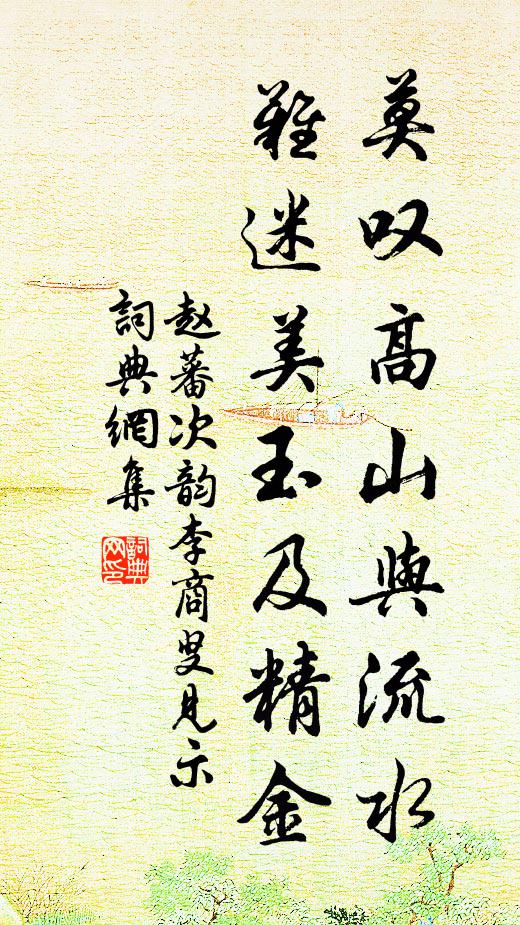 莫叹高山與流水
難迷美玉及精金
赵蕃次韵李商叟見示
詞典網集
詞典网印